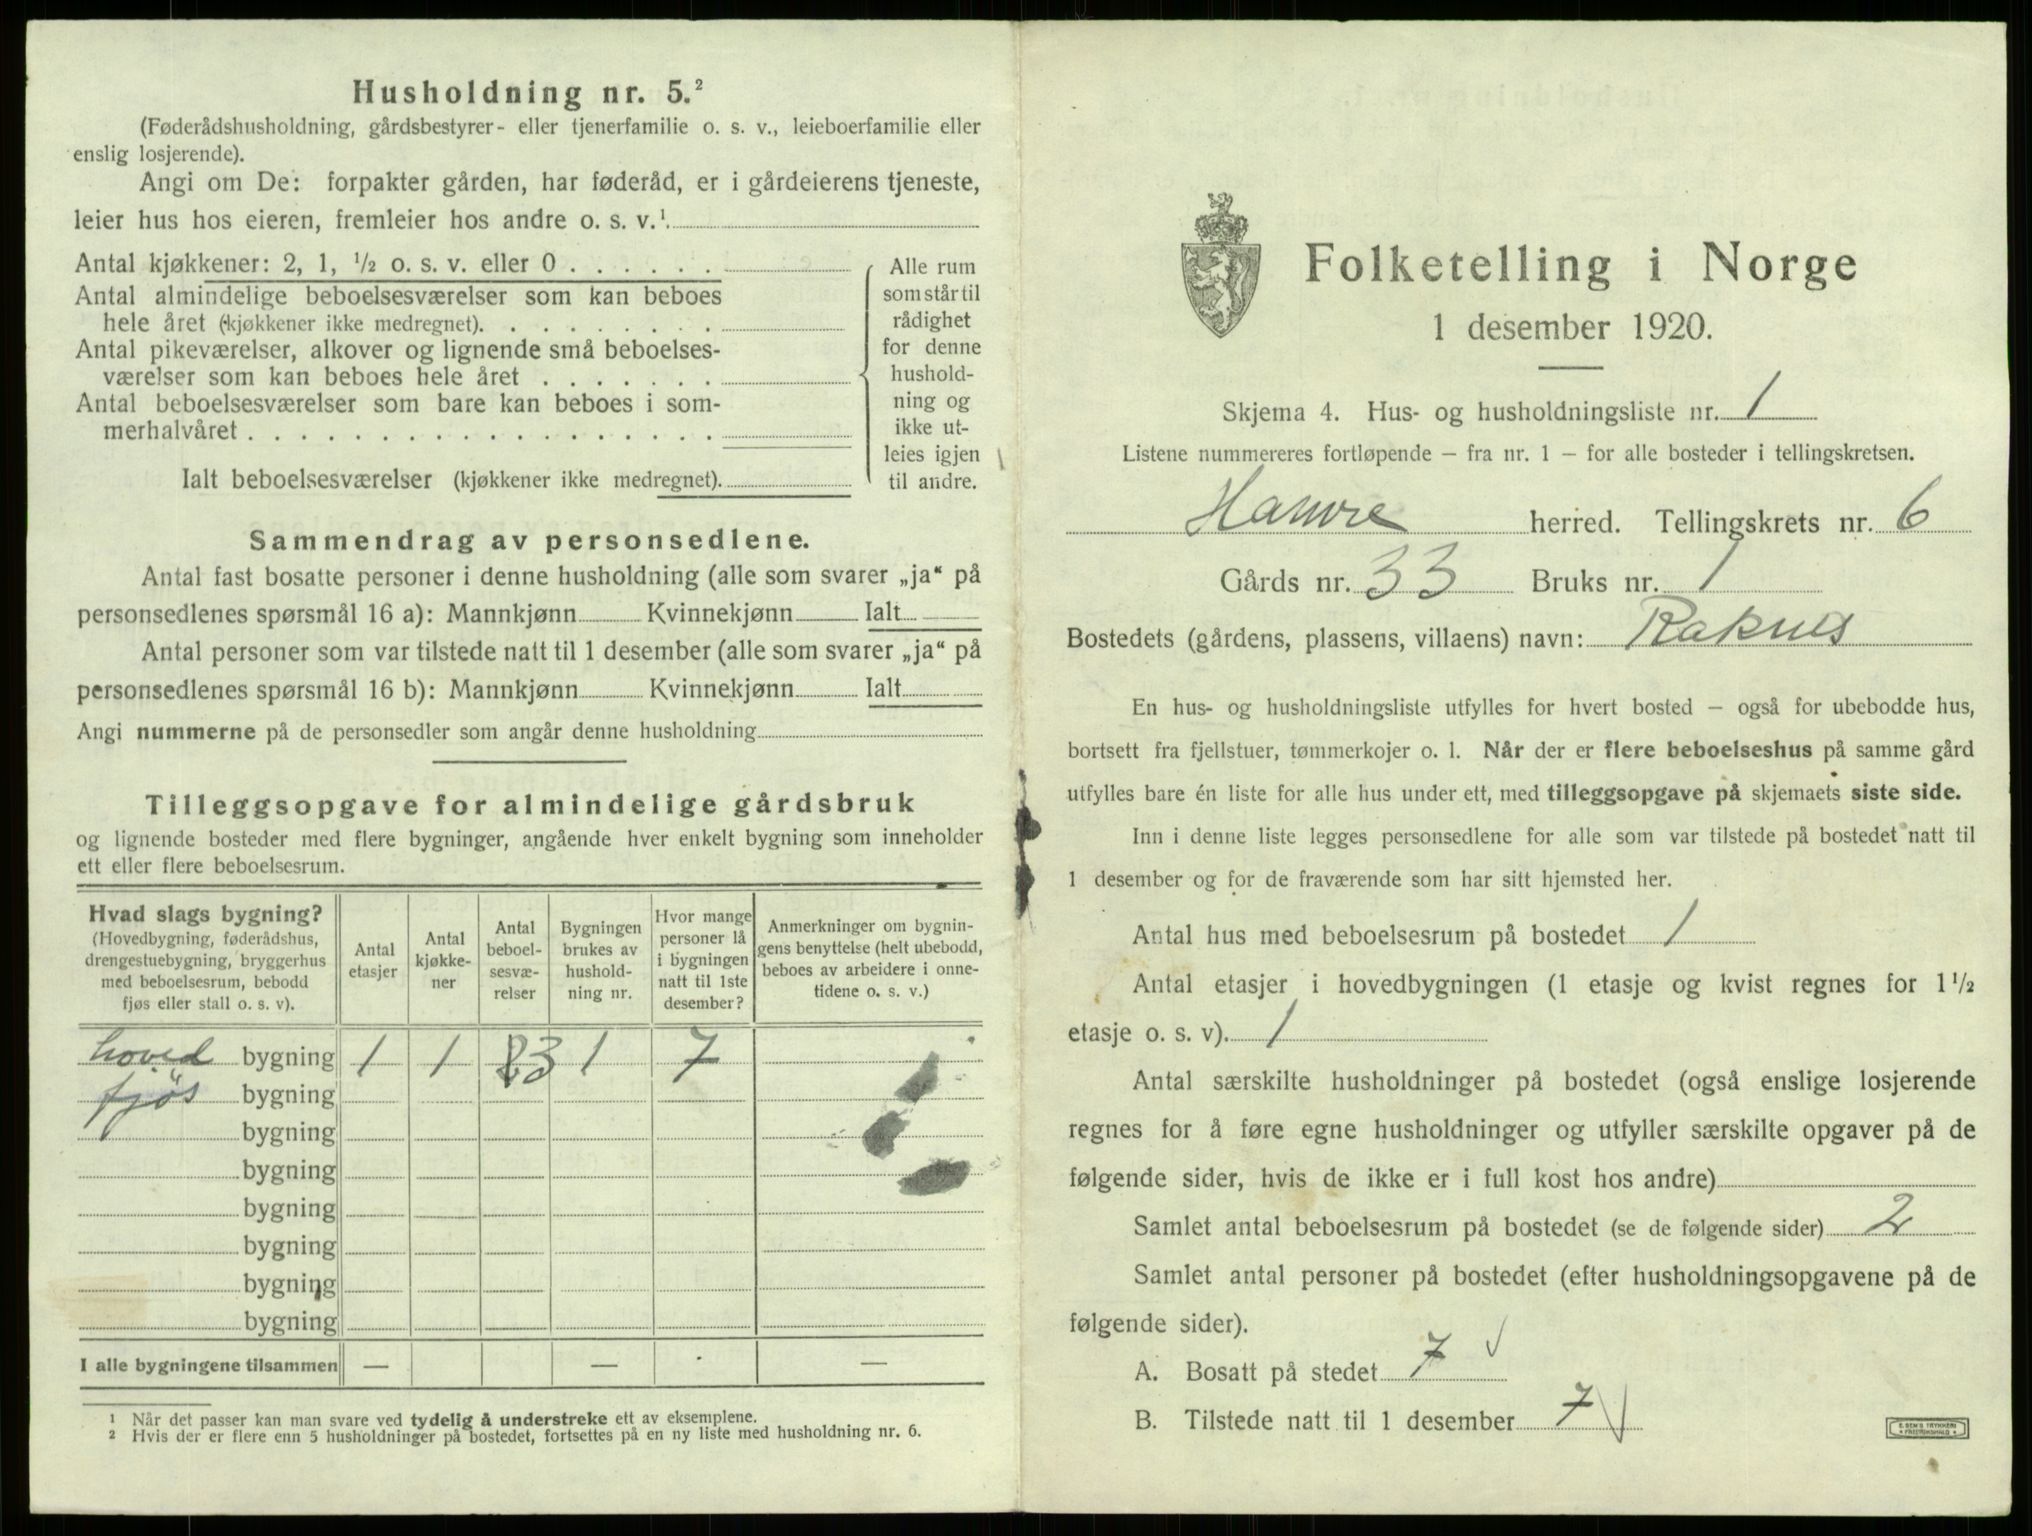 Husholdning nr. 5.²
(Føderådshusholdning, gårdsbestyrer- eller tjenerfamilie o. s. v., leieboerfamilie eller
enslig losjerende).
Angi om De: forpakter gården, har føderåd, er i gårdeierens tjeneste,
leier hus hos eieren, fremleier hos andre o. s. v.¹.
Antal kjøkkener: 2, 1, ½ o. s. v. eller 0 . . . . . .
Antal almindelige beboelsesværelser som kan beboes
hele året (kjøkkener ikke medregnet). . . . . . . . .
Antal pikeværelser, alkover og lignende små beboelses-
værelser som kan beboes hele året . . . . . . .
Antal beboelsesværelser som bare kan beboes i som-
merhalvåret . . . . . . . . . . . . . . . . . .
Ialt beboelsesværelser (kjøkkener ikke medregnet).
Alle rum
som står til
rådighet
for denne
hushold-
ning og
ikke ut-
leies igjen
til andre.
Sammendrag av personsedlene.
Antal fast bosatte personer i denne husholdning (alle som svarer „ja“ på
personsedlenes spørsmål 16 a): Mannkjønn Kvinnekjønn Ialt
Antal personer som var tilstede natt til 1 desember (alle som svarer „ja“ på
personsedlenes spørsmål 16 b): Mannkjønn Kvinnekjønn Ialt
Angi nummerne på de personsedler som angår denne husholdning
Tilleggsopgave for almindelige gårdsbruk
og lignende bosteder med flere bygninger, angående hver enkelt bygning som inneholder
ett eller flere beboelsesrum.
Hvad slags bygning?
(Hovedbygning, føderådshus,
drengestuebygning, bryggerhus
med beboelsesrum, bebodd
fjøs eller stall o. s. v).
Antal
etasjer
Antal
kjøkke-
ner
Antal
beboel-
sesvæ-
relser
Bygningen
brukes av
hushold-
ning nr.
Hvor mange
personer lå
i bygningen
natt til 1ste
desember?
Anmerkninger om bygnin-
gens benyttelse (helt ubebodd,
beboes av arbeidere i onne-
tidene o. s. v.)
hoved bygning 1 1 3 1 7
fjøs " bygning
bygning
bygning
bygning
bygning
bygning
bygning
I alle bygningene tilsammen — — —
¹ Når det passer kan man svare ved tydelig å understreke ett av eksemplene.
² Hvis der er flere enn 5 husholdninger på bostedet, fortsettes på en ny liste med husholdning nr. 6.
Folketelling i Norge
1 desember 1920.
Skjema 4. Hus- og husholdningsliste nr. 1
Listene nummereres fortløpende – fra nr. 1 – for alle bosteder i tellingskretsen.
Hamre herred. Tellingskrets nr. 6
Gårds nr. 33 Bruks nr. 1
Bostedets (gårdens, plassens, villaens) navn: Raknes
En hus- og husholdningsliste utfylles for hvert bosted – også for ubebodde hus,
bortsett fra fjellstuer, tømmerkojer o. l. Når der er flere beboelseshus på samme gård
utfylles bare én liste for alle hus under ett, med tilleggsopgave på skjemaets siste side.
Inn i denne liste legges personsedlene for alle som var tilstede på bostedet natt til
1 desember og for de fraværende som har sitt hjemsted her.
Antal hus med beboelsesrum på bostedet 1
Antal etasjer i hovedbygningen (1 etasje og kvist regnes for 1½
etasje o. s. v). 1
Antal særskilte husholdninger på bostedet (også enslige losjerende
regnes for å føre egne husholdninger og utfyller særskilte opgaver på de
følgende sider, hvis de ikke er i full kost hos andre)
Samlet antal beboelsesrum på bostedet (se de følgende sider) 2
Samlet antal personer på bostedet (efter husholdningsopgavene på de
følgende sider).
A. Bosatt på stedet 7 √
B. Tilstede natt til 1 desember 7 √
E. SEM'S TRYKKERI
FREDRIKSHALD